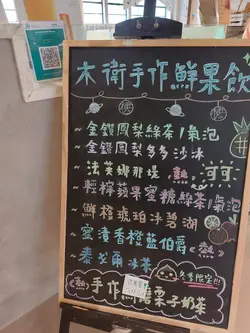 木衛手作鮮果飲
~金鑽鳳梨綠茶/氣泡
~金鑽鳳梨多多冰沙
~法芙娜那堤 熱 可可
~輕檸蘋果蜜糖綠茶/氣泡
~鮮橙琥珀冰碧湖
~蜜漬香橙藍伯爵 熱
~泰戈爾冰茶
冬季限定!!!
熱 手作 栗子奶茶